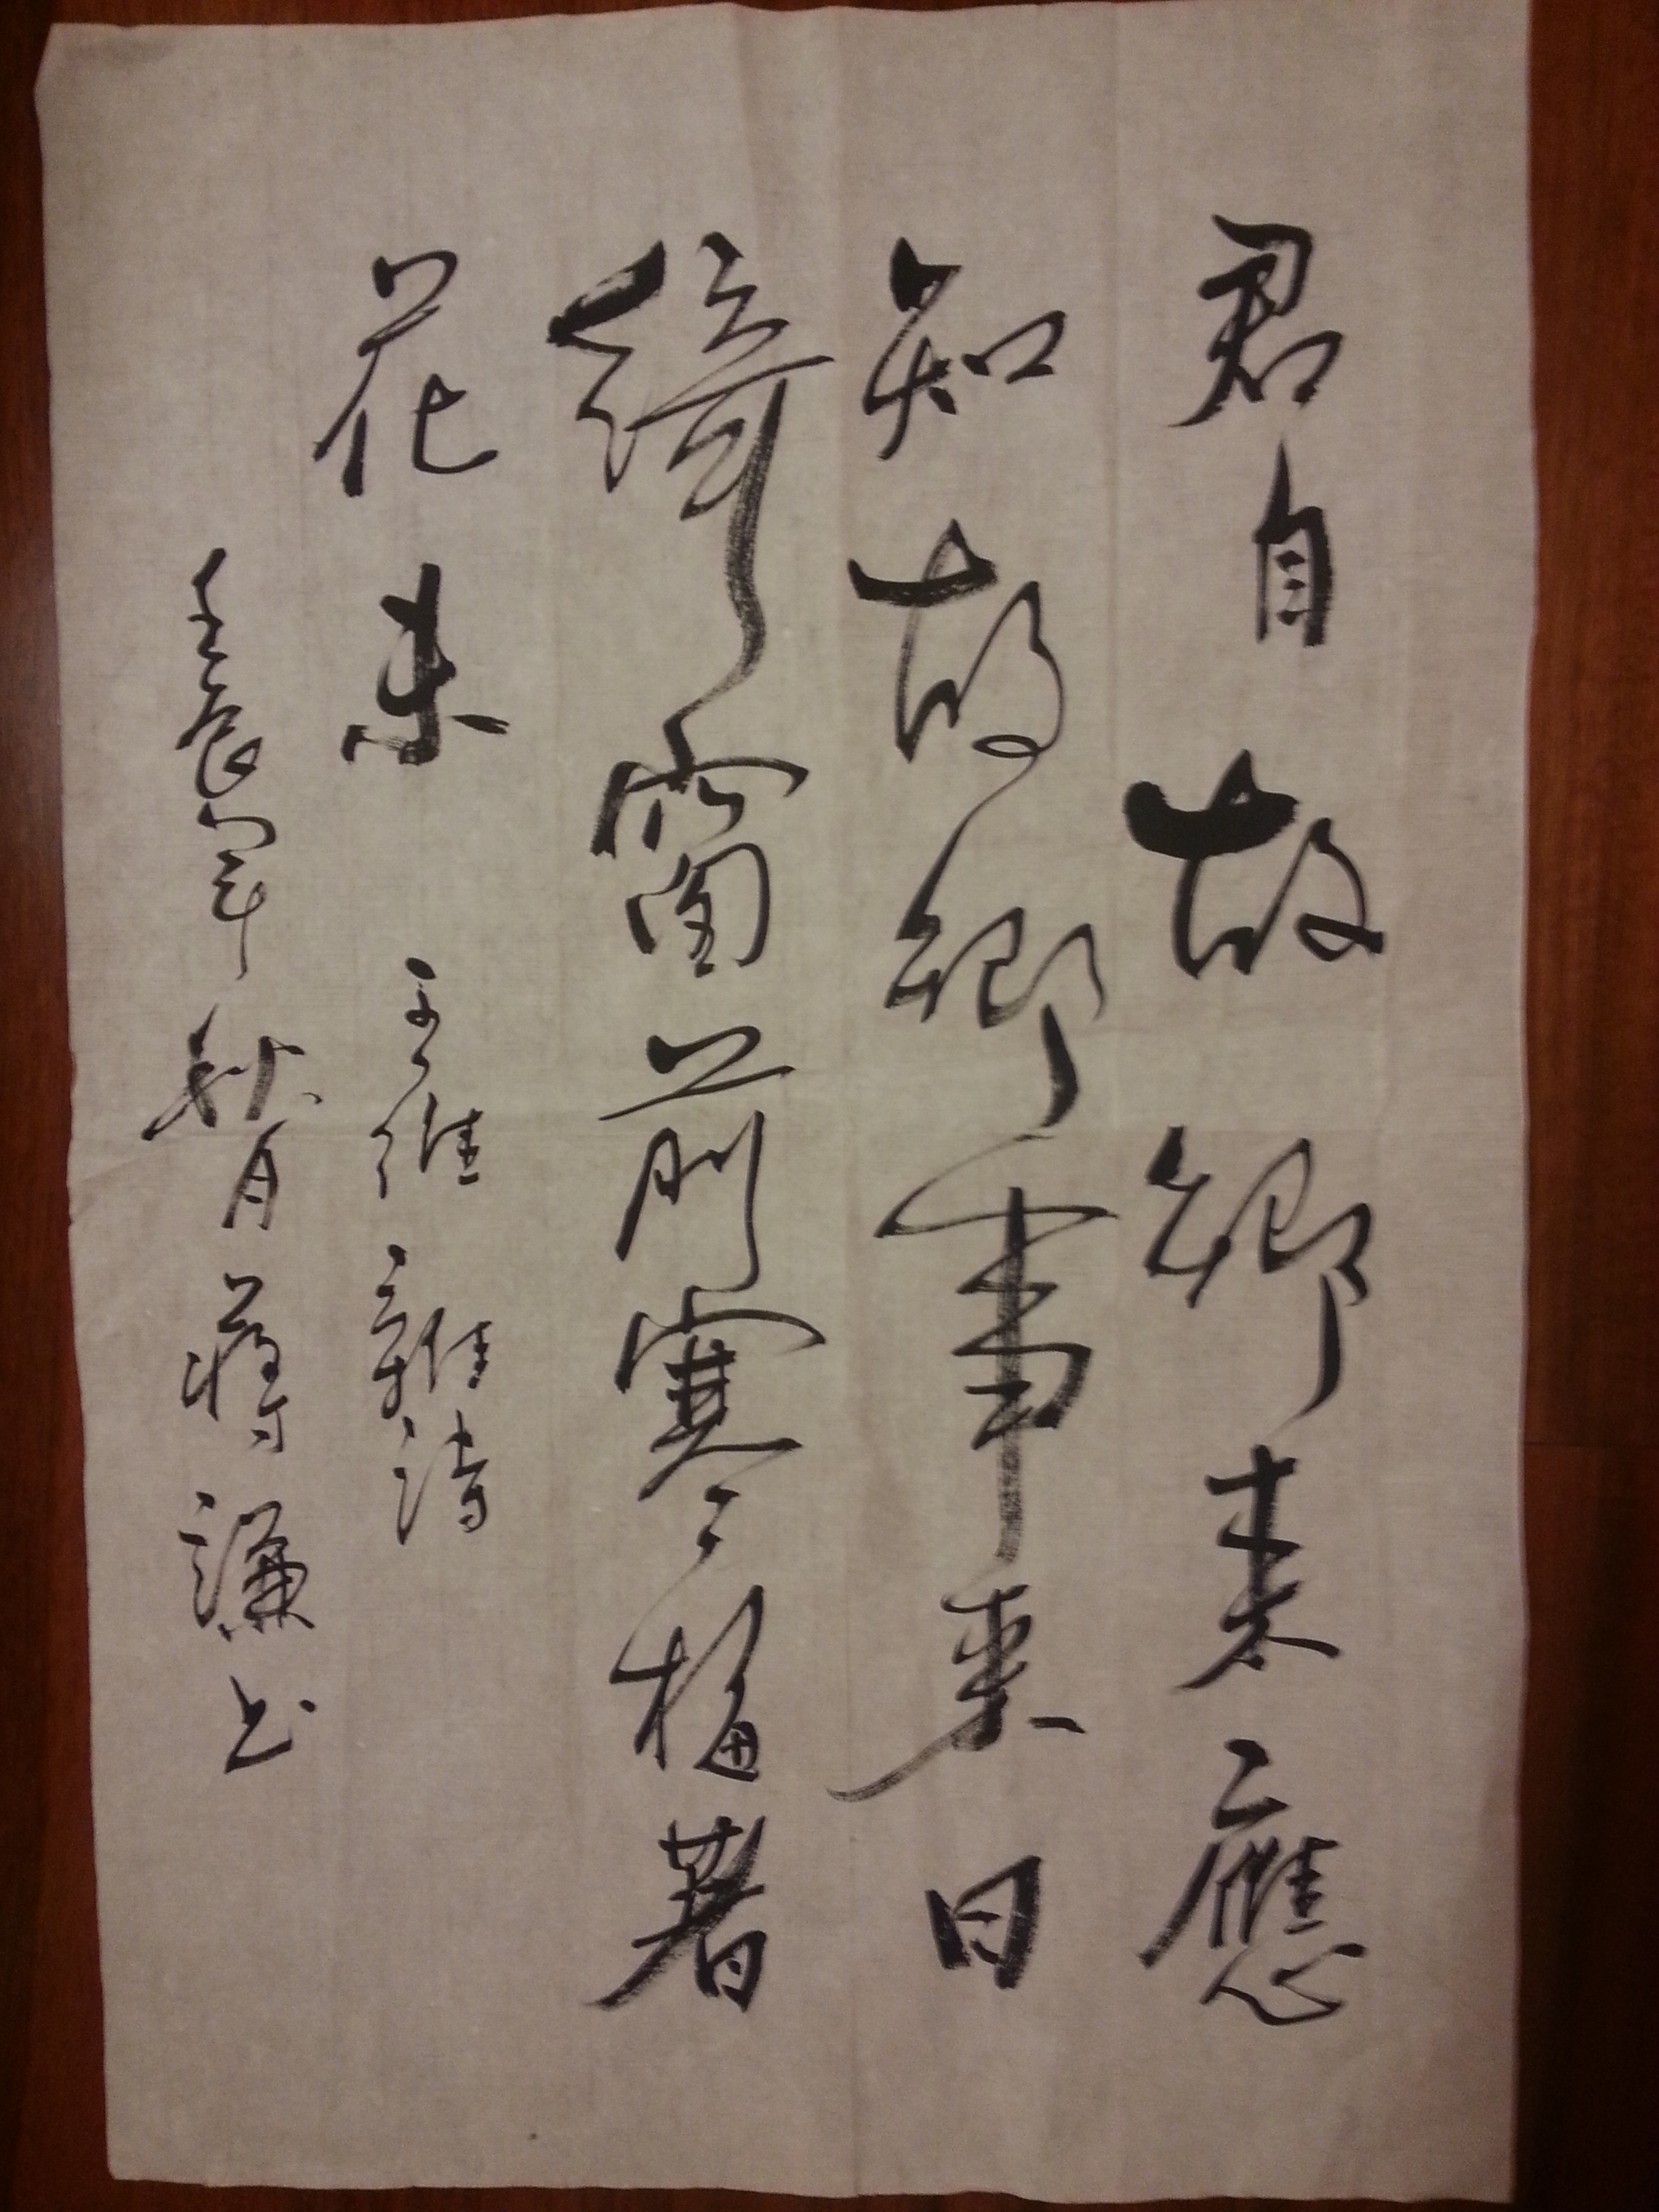 君自故鄉来應
知故鄉事来日
綺窗前寒梅著
花未
王維雜詩
壬辰年秋月蔣謙书